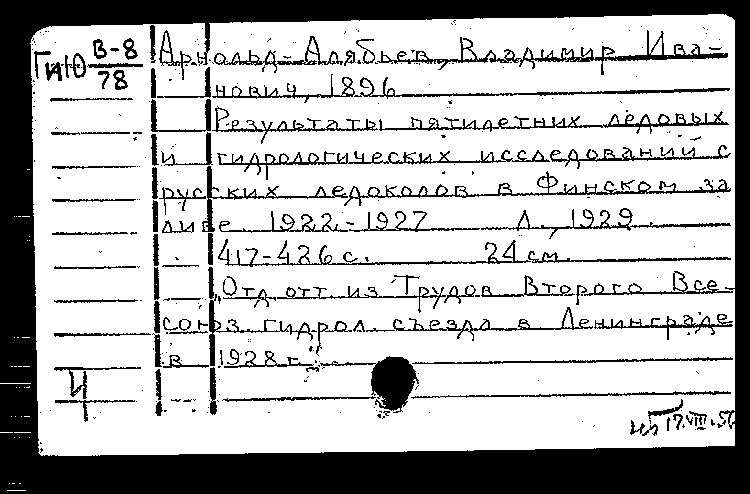 ГиЮ В-8
78
Арнольд-Алябьев, Владимир Ива-
нович, 1896
Результаты пятилетних ледовых
и гидрологических исследований с
русских ледоколов в Финском за
ливе 1922-1927 Л., 1929.
417-426 с. 24 см.
"Отд. отт. из Трудов Второго Все-
союз. гидрол. съезда в Ленинграде
в 1928 г."
Ч
17.VIII.56